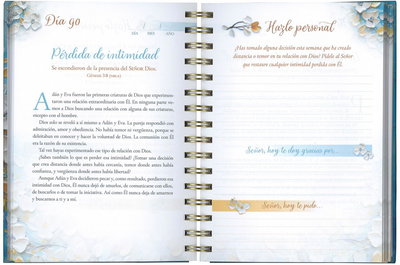 Día 90
DÍA MES AÑO
Pérdida de intimidad
Se escondieron de la presencia del SEÑOR Dios.
GÉNESIS 3:8 (NBLA)
Adán y Eva fueron las primeras criaturas de Dios que experimen-
taron una relación extraordinaria con Él. En ninguna parte ve-
mos a Dios buscando una relación con alguna de sus criaturas,
excepto con el hombre.
Dios solo se reveló a sí mismo a Adán y Eva. La pareja respondió con
admiración, amor y obediencia. No había temor ni vergüenza, porque se
deleitaban en conocer y hacer la voluntad de Dios. La comunión con Él
era la razón de su existencia.
Tal vez hayas experimentado ese tipo de relación con Dios.
¿Sabes también lo que es perder esa intimidad? ¿Tomar una decisión
que crea distancia donde antes había cercanía, temor donde antes había
confianza, y vergüenza donde antes había libertad?
Aunque Adán y Eva decidieron pecar y, como resultado, perdieron esa
intimidad con Dios, Él nunca dejó de amarlos, de comunicarse con ellos,
de buscarlos o de tomar la iniciativa. Así como Él nunca deja de amarnos
y buscarnos a ti y a mí.
Hazlo personal
¿Has tomado alguna decisión esta semana que ha creado
distancia o temor en tu relación con Dios? Pídele al Señor
que restaure cualquier intimidad perdida con Él.
Señor, hoy te doy gracias por...
Señor, hoy te pido...